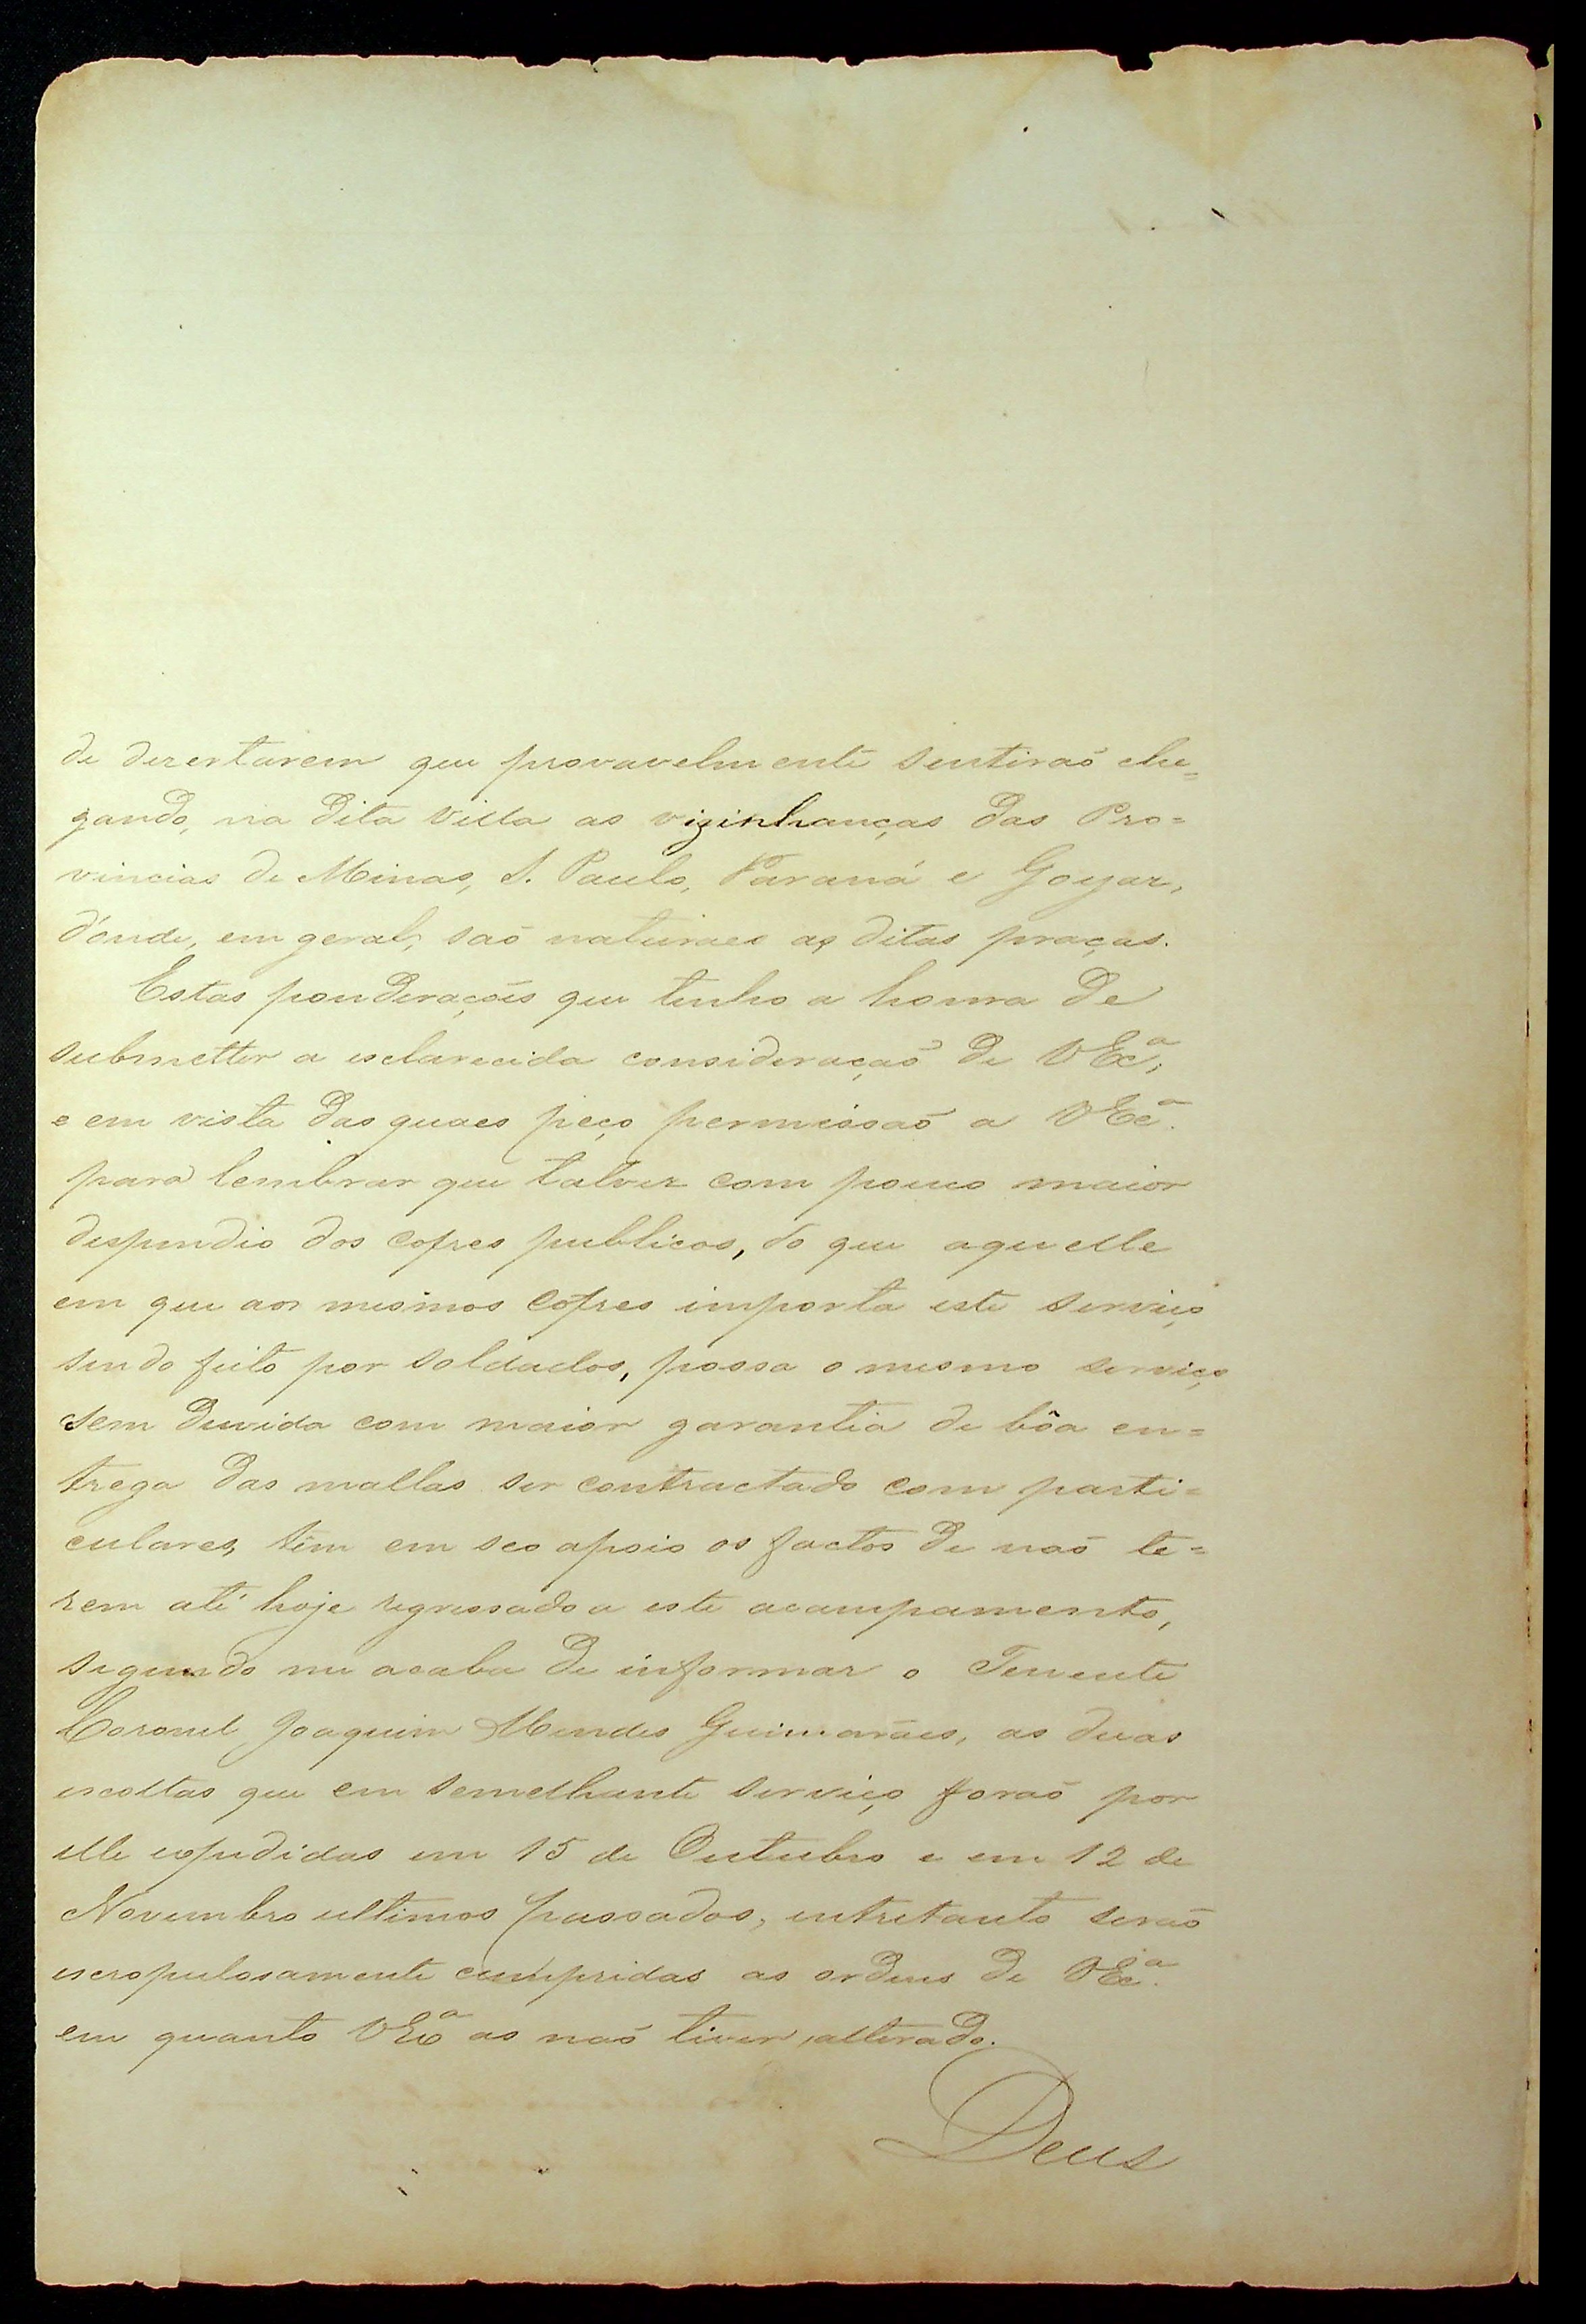 de dezertarem que provavelmente sentiraõ che=
gando, na dita Villa as vizinhanças das Pro=
vincias de Minas, S. Paulo, Paraná e Goyaz,
d'onde, em geral, saõ naturaes as ditas praças.
Estas ponderações que tenho a honra de
submetter a esclarecida consideraçaõ de V Exª,
e em vista das quaes peço permissaõ a V Exª.
para lembrar que talvez com pouco maior
despendio dos cofres publicos, do que aquelle
em que aos mesmos cofres importa este serviço
sendo feito por soldados, possa o mesmo serviço
sem duvida com maior garantia de bôa en=
trega das mallas ser contractado com parti=
culares, têm em seo apoio os factos de naõ te=
rem até hoje regressado a este acampamento,
segundo me acaba de informar o Tenente
Coronel Joaquim Mendes Guimarães, as duas
escoltas que em semelhante serviço foraõ por
elle expedidas em 15 de Outubro e em 12 de
Novembro ultimos passados, entretanto seraõ
escropulosamente cumpridas as ordens de V Exª.
em quanto V Exª as naõ tiver alterado.
Deus